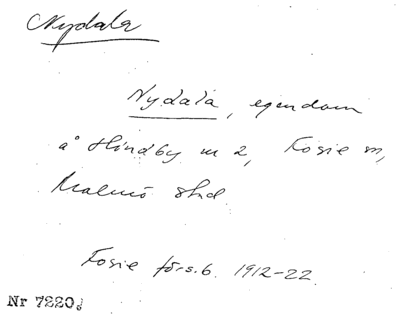 Nydala
Nydala, egendom
å Hindby m 2, Fosie sn,
Malmö stad
Fosie förs.b. 1912-22.
Nr 7220.